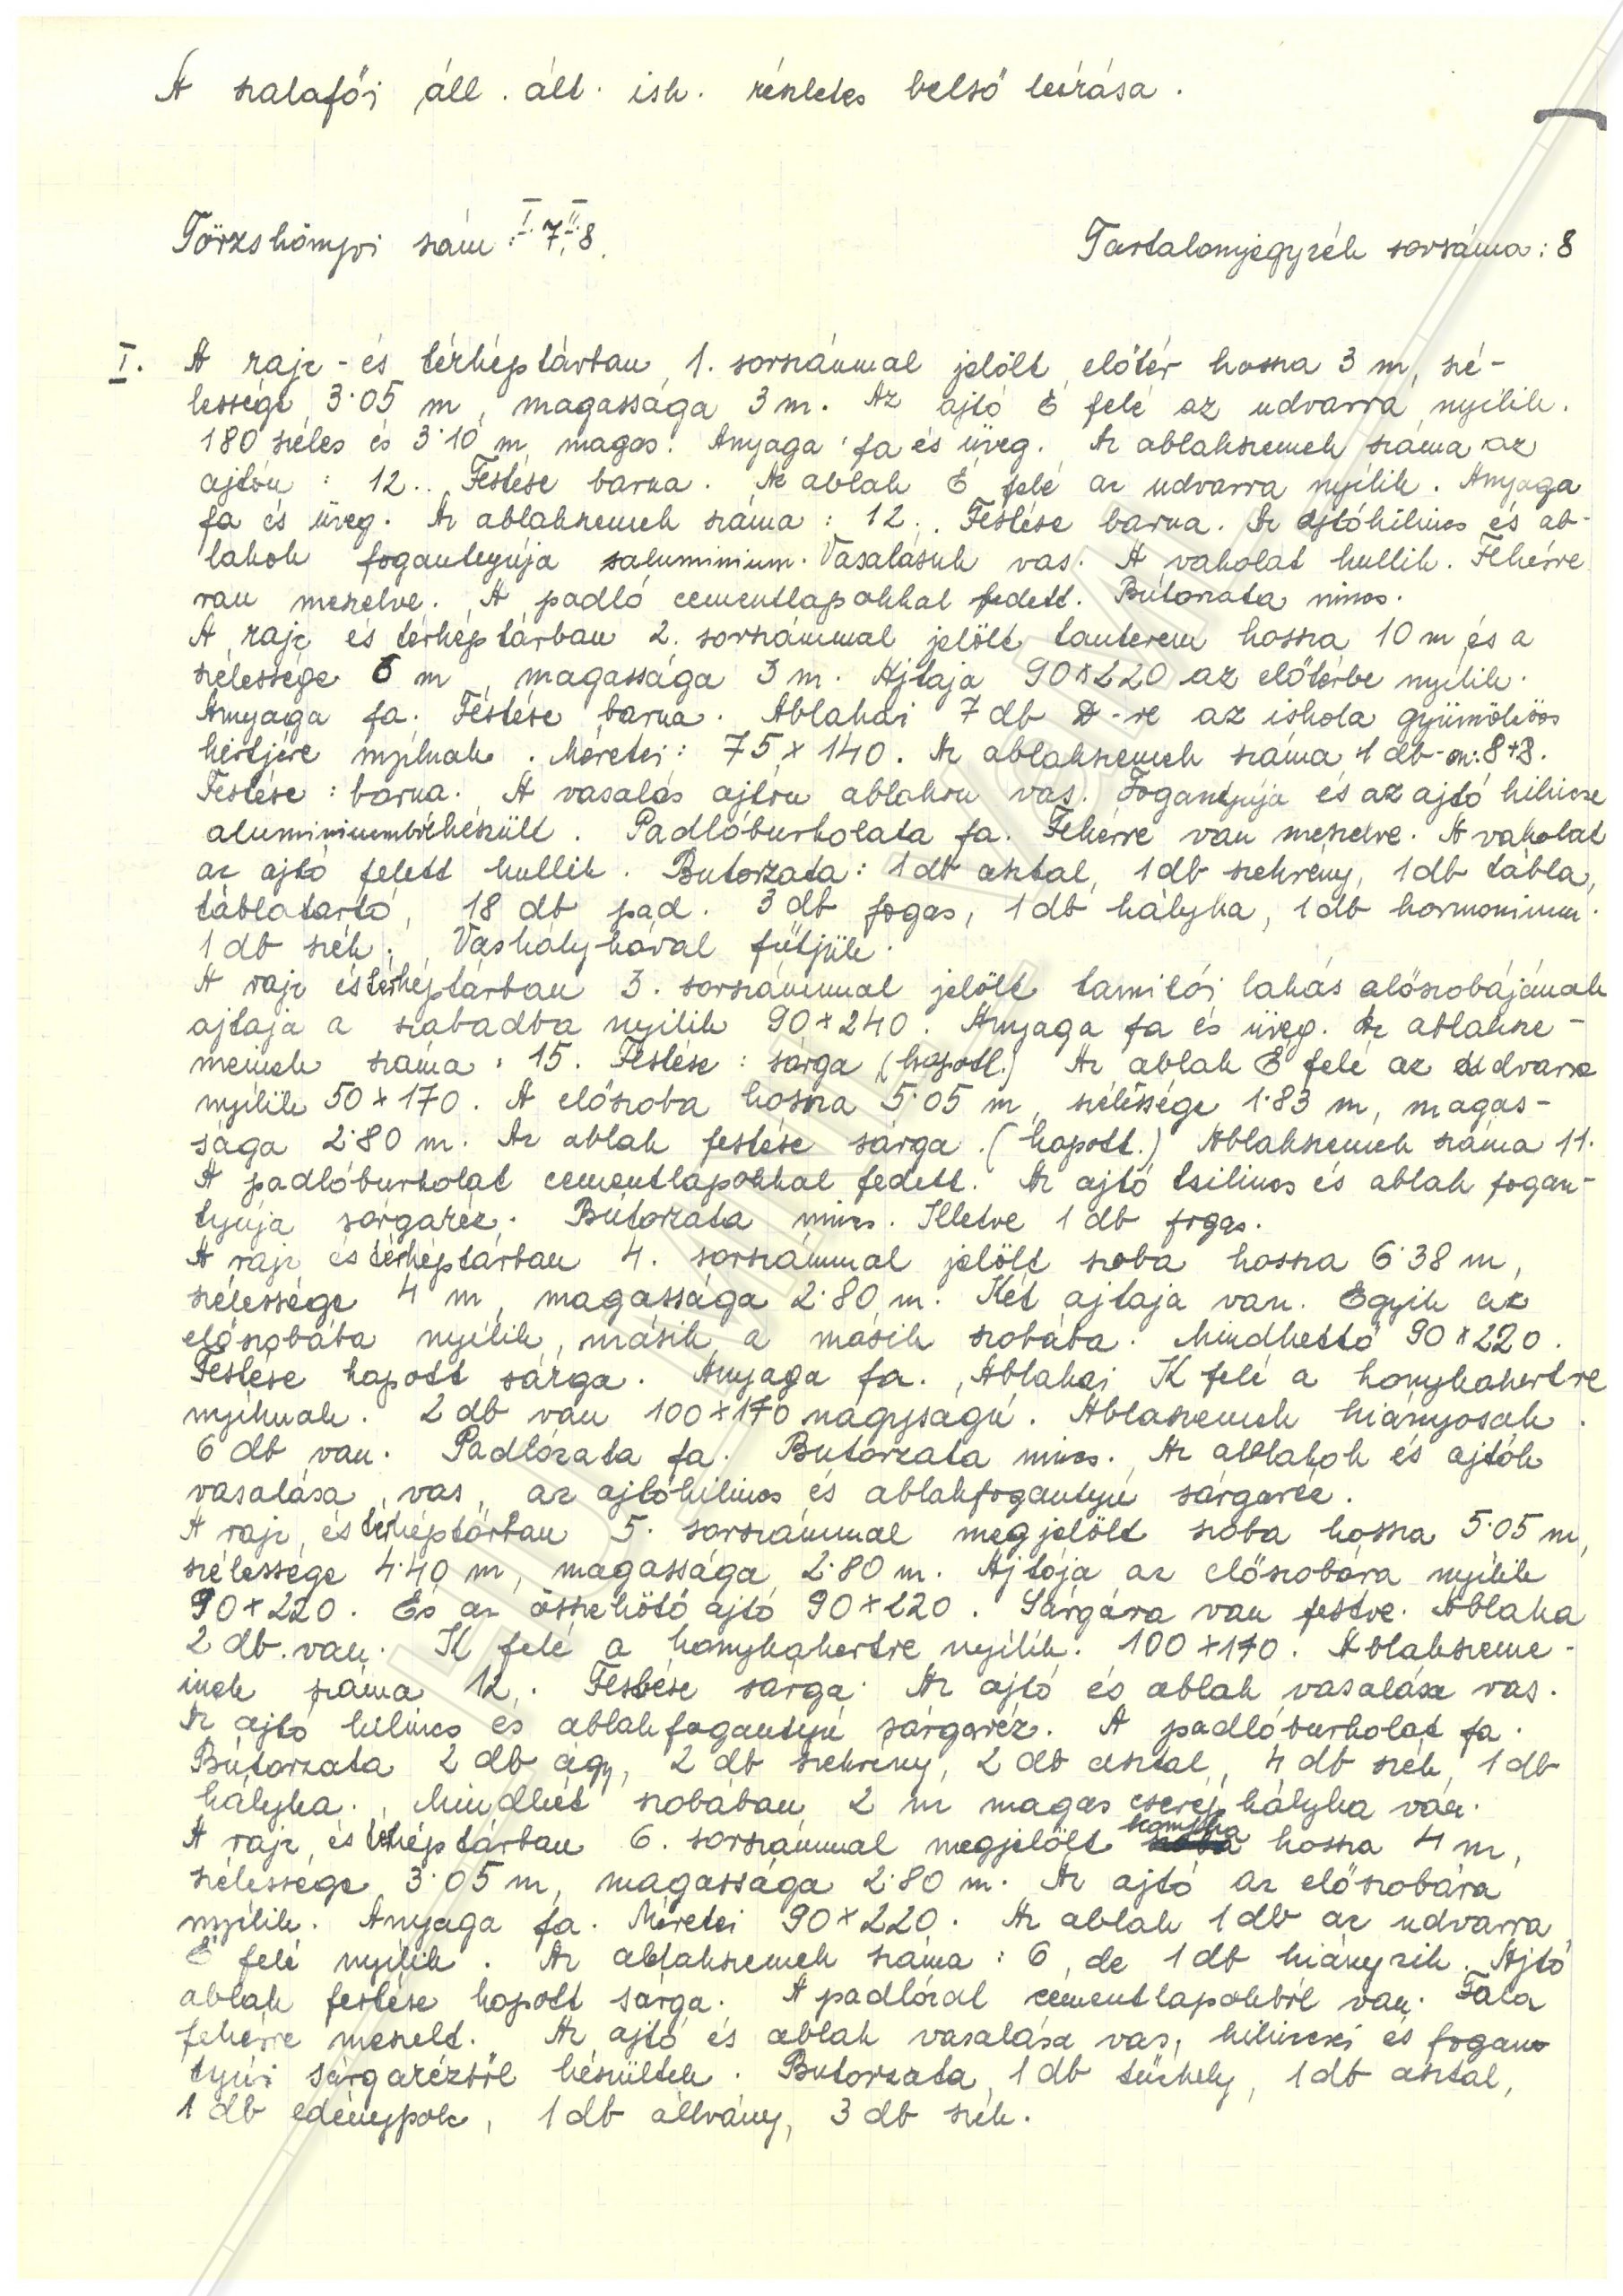 A szalafői áll. ált. isk. részletes belső leírása.
Törzskönyvi szám: I. 7, II. 8.
Tartalomjegyzék sorszáma: 8
I. A rajz- és térképtárban 1. sorszámmal jelölt előtér hossza 3 m, szé-
lessége 3·05 m, magassága 3 m. Az ajtó É felé az udvarra nyílik.
180 széles és 3·10 m magas. Anyaga: fa és üveg. Az ablakszemek száma az
ajtón: 12.. Festése barna. Az ablak É felé az udvarra nyílik. Anyaga
fa és üveg. Az ablakszemek száma: 12.. Festése barna. Az ajtókilincs és ab-
lakok fogantyúja aluminium. Vasalásuk vas. A vakolat hullik. Fehérre
van meszelve. A padló cementlapokkal fedett. Bútorzata nincs.
A rajz és térképtárban 2. sorszámmal jelölt tanterem hossza 10 m és a
szélessége 6 m, magassága 3 m. Ajtaja 90×220 az előtérbe nyílik.
Anyaga fa. Festése barna. Ablakai 7 db D-re az iskola gyümölcsös
kertjére nyílnak. Méretei: 75×140. Az ablakszemek száma 1 db-on: 8+8.
Festése: barna. A vasalás ajtón ablakon vas. Fogantyúja és az ajtó kilincse
aluminiumból készült. Padlóburkolata fa. Fehérre van meszelve. A vakolat
az ajtó felett hullik. Butorzata: 1 db asztal, 1 db szekrény, 1 db tábla,
táblatartó, 18 db pad. 3 db fogas, 1 db kályha, 1 db harmonium.
1 db szék. Vaskályhával fűtjük.
A rajz és térképtárban 3. sorszámmal jelölt tanítói lakás előszobájának
ajtaja a szabadba nyílik 90×240. Anyaga fa és üveg. Az ablaksze-
meinek száma: 15. Festése: sárga (kopott.) Az ablak É felé az udvarra
nyílik 50×170. A előszoba hossza 5·05 m, szélessége 1·83 m, magas-
sága 2·80 m. Az ablak festése sárga. (kopott.) Ablakszemek száma 11.
A padlóburkolat cementlapokkal fedett. Az ajtó kilincs és ablak fogan-
tyúja sárgaréz. Bútorzata nincs. Illetve 1 db fogas.
A rajz és térképtárban 4. sorszámmal jelölt szoba hossza 6·38 m,
szélessége 4 m, magassága 2·80 m. Két ajtaja van. Egyik az
előszobába nyílik, másik a másik szobába. Mindkettő 90×220.
Festése kopott sárga. Anyaga fa. Ablakai K felé a konyhakertre
nyílnak. 2 db van 100×170 nagyságú. Ablaszemek hiányosak.
6 db van. Padlózata fa. Butorzata nincs. Az ablakok és ajtók
vasalása vas, az ajtókilincs és ablakfogantyú sárgaréz.
A rajz és térképtárban 5. sorszámmal megjelölt szoba hossza 5·05 m,
szélessége 4·40 m, magassága 2·80 m. Ajtója az előszobára nyílik
90×220. És az összekötő ajtó 90×220. Sárgára van festve. Ablaka
2 db. van. K felé a konyhakertre nyílik. 100×170. Ablakszeme-
inek száma 12. Festése sárga. Az ajtó és ablak vasalása vas.
Az ajtó kilincs és ablakfogantyú sárgaréz. A padlóburkolat fa.
Bútorzata 2 db ágy, 2 db szekrény, 2 db asztal, 4 db szék, 1 db
kályha. Mindkét szobában 2 m magas cserép kályha van.
A rajz és térképtárban 6. sorszámmal megjelölt konyha hossza 4 m,
szélessége 3·05 m, magassága 2·80 m. Az ajtó az előszobára
nyílik. Anyaga fa. Méretei 90×220. Az ablak 1 db az udvarra
É felé nyílik. Az ablakszemek száma: 6, de 1 db hiányzik. Ajtó
ablak festése kopott sárga. A padlózat cementlapokból van. Fala
fehérre meszelt. Az ajtó és ablak vasalása vas, kilincsei és fogan
tyúi sárgarézből készültek. Butorzata 1 db tűzhely, 1 db asztal,
1 db edénypolc, 1 db állvány, 3 db szék.